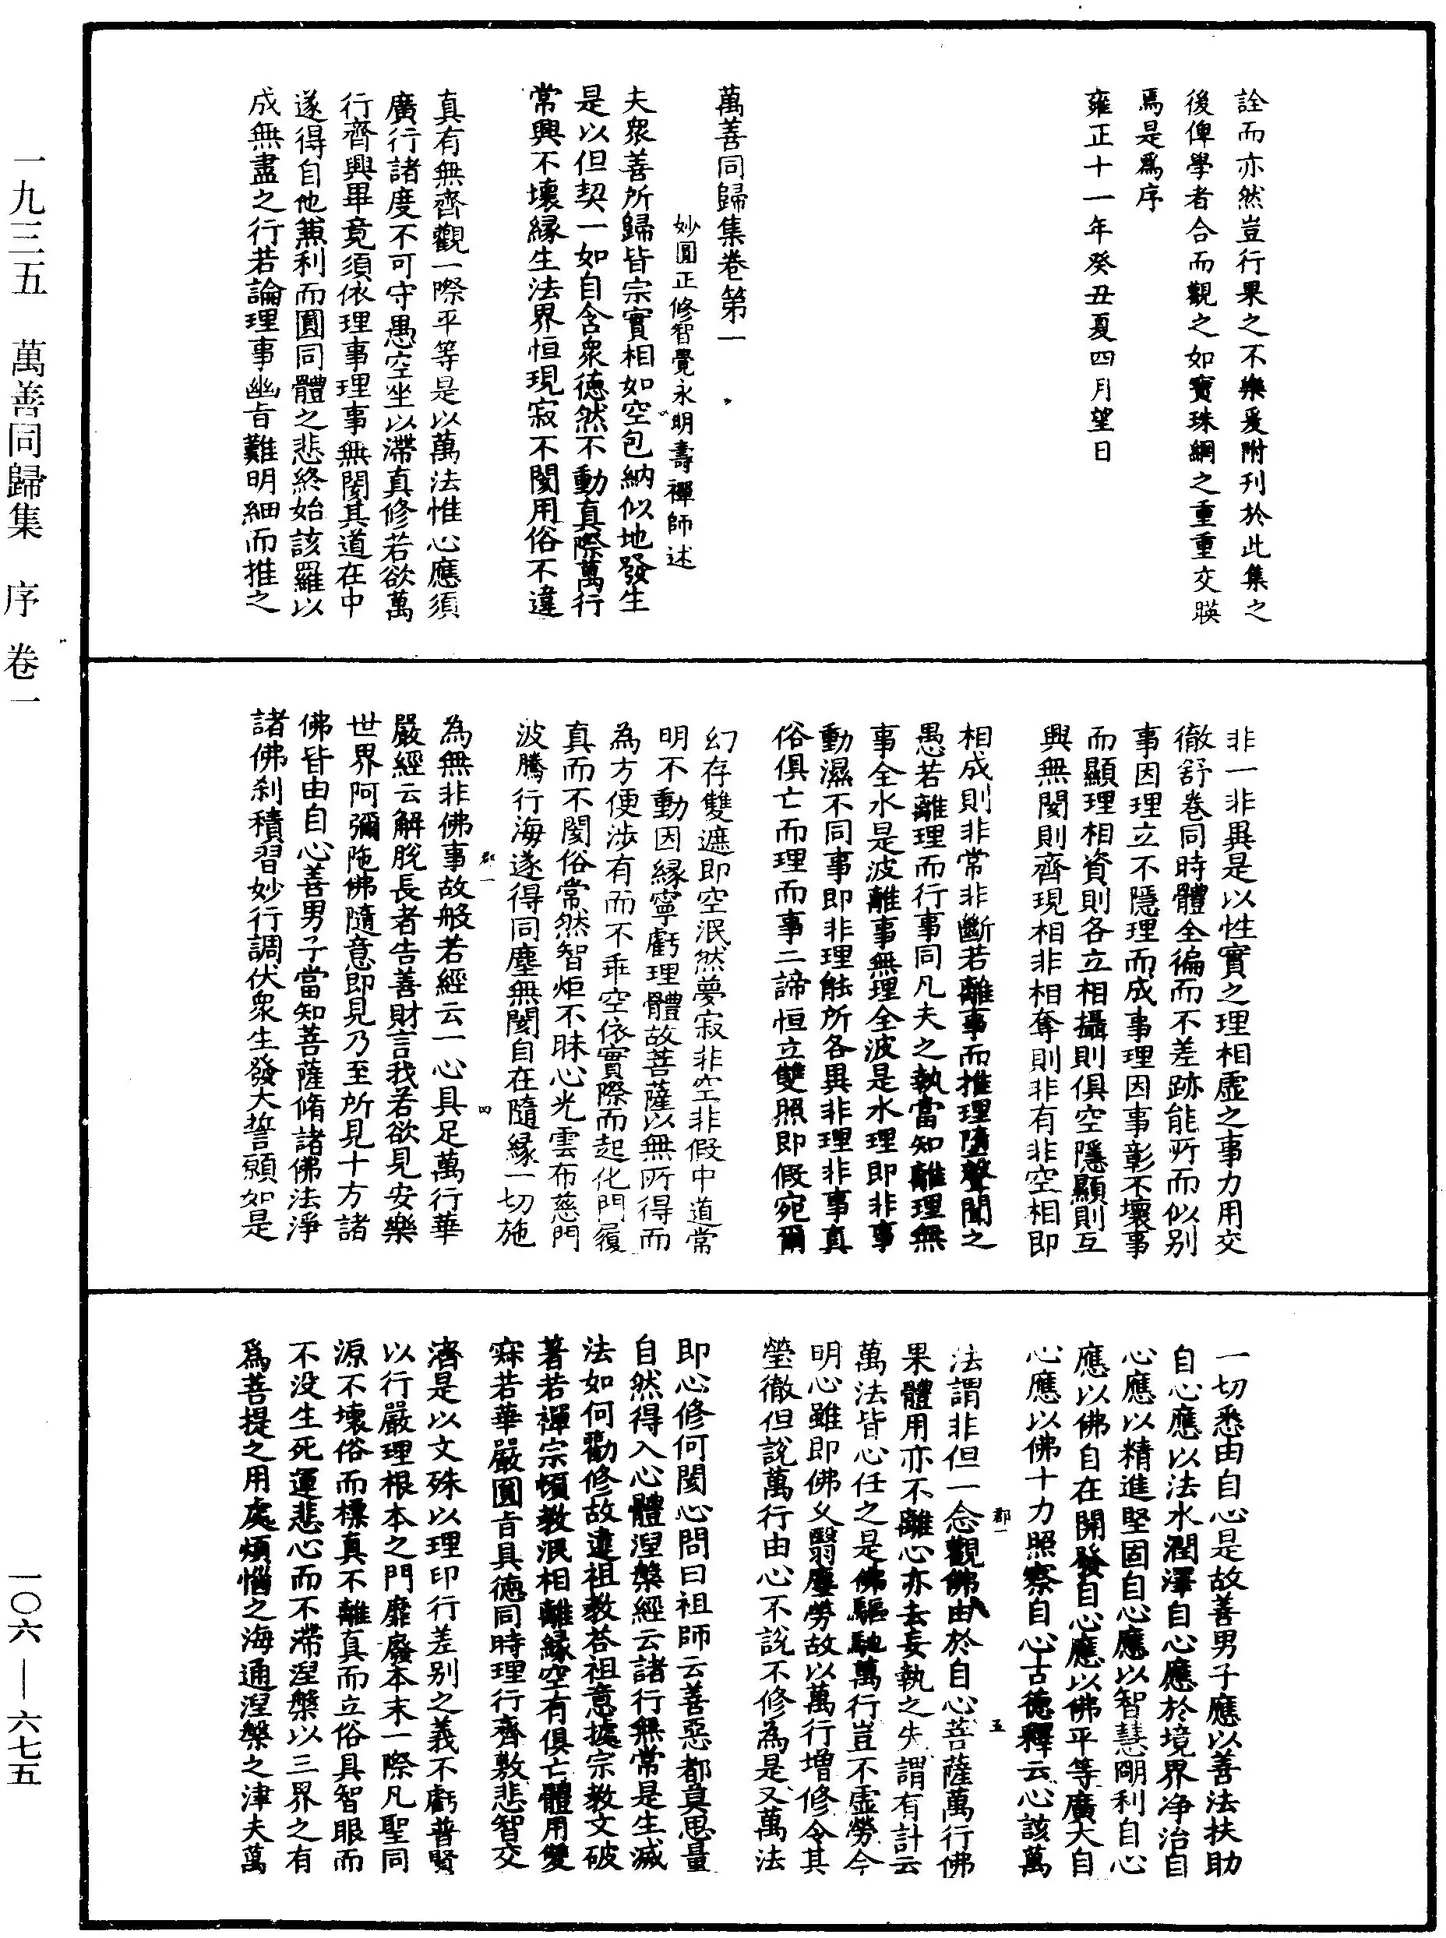 詮而亦然豈行果之不樂爰附刊於此集之
後俾學者合而觀之如寶珠網之重重交暎
焉是爲序
雍正十一年癸丑夏四月望日
萬善同歸集卷第一
妙圓正修智覺永明壽禪師述
夫衆善所歸皆宗實相如空包納似地發生
是以但契一如自含衆德然不動真際萬行
常興不壞緣生法界恒現寂不閡用俗不違
真有無齊觀一際平等是以萬法惟心應須
廣行諸度不可守愚空坐以滯真修若欲萬
行齊興畢竟須依理事理事無閡其道在中
遂得自他兼利而圓同體之悲終始該羅以
成無盡之行若論理事幽旨難明細而推之
非一非異是以性實之理相虛之事力用交
徹舒卷同時體全徧而不差跡能所而似別
事因理立不隱理而成事理因事彰不壞事
而顯理相資則各立相攝則俱空隱顯則互
興無閡則齊現相非相奪則非有非空相即
相成則非常非斷若離事而推理墮聲聞之
愚若離理而行事同凡夫之執當知離理無
事全水是波離事無理全波是水理即非事
動濕不同事即非理能所各異非理非事真
俗俱亡而理而事二諦恒立雙照即假宛爾
幻存雙遮即空泯然夢寂非空非假中道常
明不動因緣寧虧理體故菩薩以無所得而
為方便涉有而不乖空依實際而起化門履
真而不閡俗常然智炬不昧心光雲布慈門
波騰行海遂得同塵無閡自在隨緣一切施
為無非佛事故般若經云一心具足萬行華
嚴經云解脫長者告善財言我若欲見安樂
世界阿彌陁佛隨意即見乃至所見十方諸
佛皆由自心善男子當知菩薩脩諸佛法淨
諸佛刹積習妙行調伏衆生發大誓願如是
一切悉由自心是故善男子應以善法扶助
自心應以法水潤澤自心應於境界净治自
心應以精進堅固自心應以智慧明利自心
應以佛自在開發自心應以佛平等廣大自
心應以佛十力照察自心古德釋云心該萬
法謂非但一念觀佛由於自心菩薩萬行佛
果體用亦不離心亦去妄執之失謂有計云
萬法皆心任之是佛驅馳萬行豈不虛勞今
明心雖即佛久翳塵勞故以萬行增修令其
瑩徹但說萬行由心不說不修為是又萬法
即心修何閡心問曰祖師云善惡都莫思量
自然得入心體涅槃經云諸行無常是生滅
法如何勸修故違祖教荅祖意據宗教文破
著若禪宗頓教泯相離緣空有俱亡體用雙
寂若華嚴圓旨具德同時理行齊敷悲智交
濟是以文殊以理印行差别之義不虧普賢
以行嚴理根本之門靡廢本末一際凡聖同
源不壞俗而標真不離真而立俗具智眼而
不没生死運悲心而不滯涅槃以三界之有
爲菩提之用處煩惱之海通涅槃之津夫萬
郡一
四
郡一
五
一九三五　萬善同歸集　序　卷一
一〇六—六七五